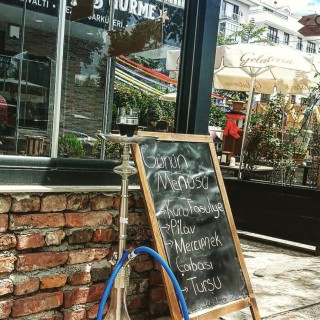 GÜRME
Gelateria
Günün
Menüsü
→ Kuru Fasulye
→ Pilav
→ Mercimek
Çorbası
→ Turşu